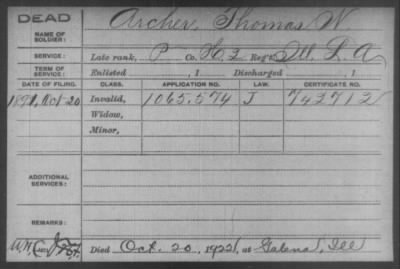 DEAD
NAME OF SOLDIER: Archer, Thomas N
SERVICE: Late rank, P Co. H, 2 Reg't Ill. L. A
TERM OF SERVICE: Enlisted , 1 Discharged , 1
DATE OF FILING. CLASS. APPLICATION NO. LAW. CERTIFICATE NO.
1891, Oct 20 Invalid, 1065.574 J 742712
Widow,
Minor,
ADDITIONAL SERVICES:
REMARKS:
Died Oct. 20, 1922, at Galena, Ill